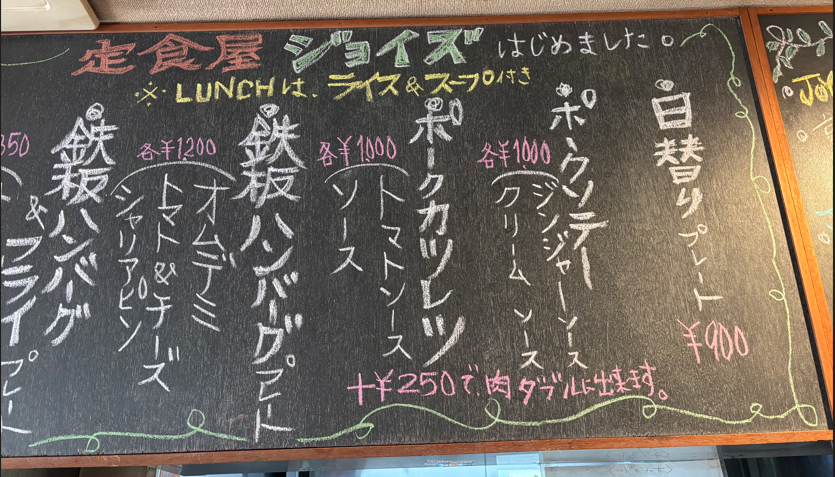 定食屋 ジョイズ はじめました。
※ LUNCHは、ライス&スープ付き
日替りプレート
¥900
ポークソテー
各¥1000
ジンジャーソース
クリームソース
ポークカツレツ
各¥1,000
トマトソース
ソース
+¥250で、肉ダブルに出来ます。
鉄板ハンバーグプレート
各¥1,200
オムデミ
トマト&チーズ
シャリアピン
鉄板ハンバーグ
&フライプレート
350